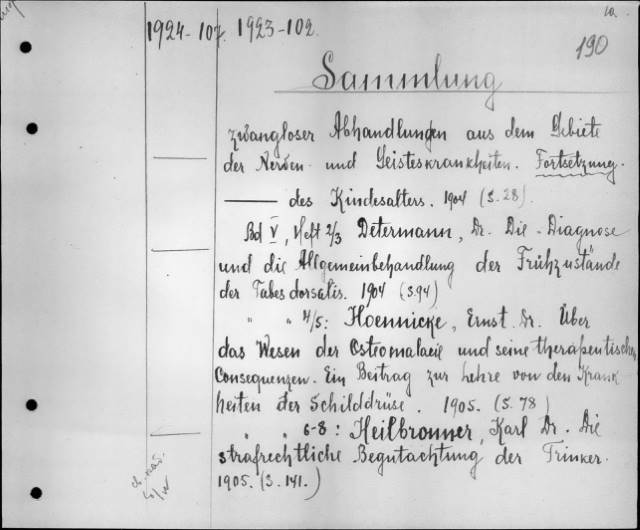 1924-107. 1923-102.
190
Sammlung
zwangloser Abhandlungen aus dem Gebiete
der Nerven- und Geisteskrankheiten. Fortsetzung.
—— des Kindesalters. 1904 (S. 28).
Bd V, Heft 2/3 Determann, Dr. Die Diagnose
und die Allgemeinbehandlung der Frühzustände
der Tabes dorsalis. 1904 (S.94)
" " 4/5: Hoennicke, Ernst Dr. Über
das Wesen der Osteomalacie und seine therapeutischen
Consequenzen. Ein Beitrag zur Lehre von den Krank
heiten der Schilddrüse. 1905. (S. 78)
" " 6-8: Heilbronner, Karl Dr. Die
strafrechtliche Begutachtung der Trinker.
1905. (S. 141.)